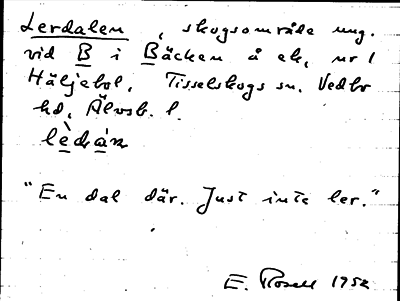 Lerdalen, skogsområde ung.
vid B i Bäcken å ek, nr 1
Häljebol, Tisselskogs sn. Vedbo
hd, Älvsb. l.
lèdán
"En dal där. Just inte ler."
E. Rosell 1952